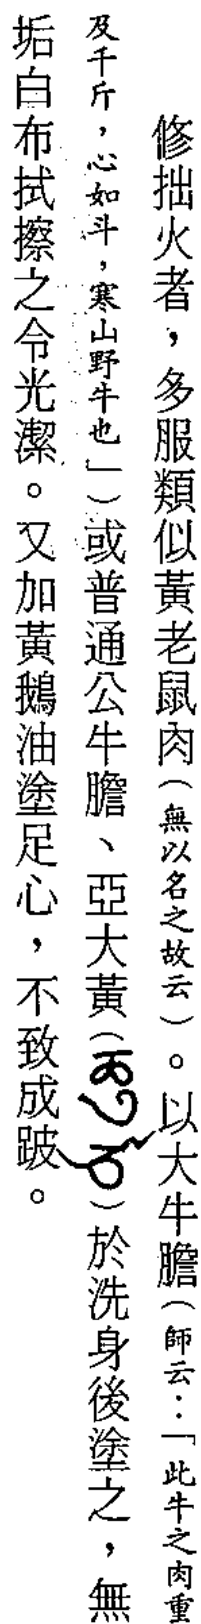 修拙火者，多服類似黃老鼠肉（無以名之故云）。以大牛膽（師云：「此牛之肉重
及千斤，心如斗，寒山野牛也」）或普通公牛膽、亞大黃（）於洗身後塗之，無
垢白布拭擦之令光潔。又加黃鵝油塗足心，不致成跛。